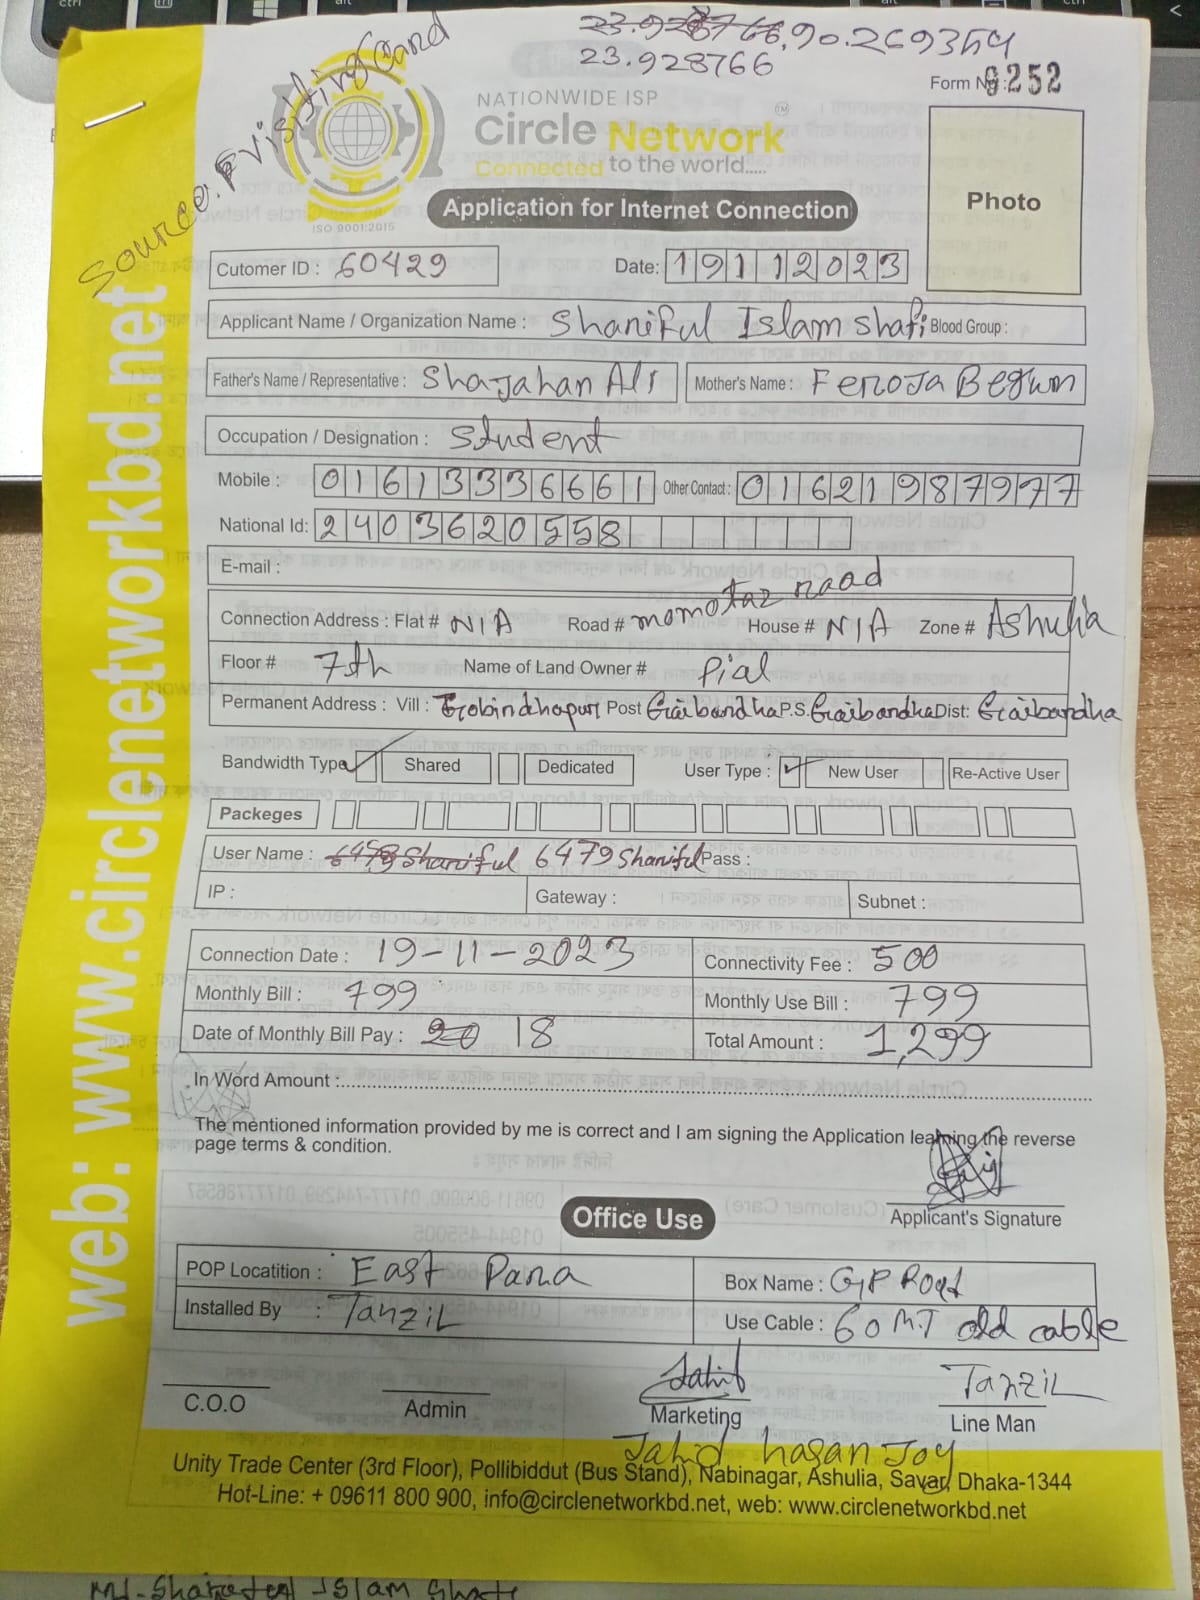 23.928766, 90.269354
23.928766
Source: visiting Card
Form No: 9252
NATIONWIDE ISP
Circle Network
Connected to the world.....
ISO 9001:2015
Application for Internet Connection
Photo
Cutomer ID : 60429 Date: 19112023
Applicant Name / Organization Name : Shariful Islam Shafi Blood Group :
Father's Name / Representative : Shajahan Ali Mother's Name : Feroja Begum
Occupation / Designation : Student
Mobile : 01613336661 Other Contact : 01621987977
National Id: 2403620558
E-mail :
Connection Address : Flat # N/A Road # momotaz road House # N/A Zone # Ashulia
Floor # 7th Name of Land Owner # Pial
Permanent Address : Vill : Gobindhapur Post Gaibandha P.S. Gaibandha Dist: Gaibandha
Bandwidth Type Shared Dedicated User Type : New User Re-Active User
Packeges
User Name : 6479 Shariful 6479 Shariful Pass :
IP : Gateway : Subnet :
Connection Date : 19-11-2023 Connectivity Fee : 500
Monthly Bill : 799 Monthly Use Bill : 799
Date of Monthly Bill Pay : 20 18 Total Amount : 1,299
In Word Amount :
The mentioned information provided by me is correct and I am signing the Application learning the reverse
page terms & condition.
Applicant's Signature
Office Use
POP Locatition : East Para Box Name : GP Road
Installed By : Tanzil Use Cable : 60 M.T old cable
Jahid Tanzil
C.O.O Admin Marketing Line Man
Jahid hasan Joy
Unity Trade Center (3rd Floor), Pollibiddut (Bus Stand), Nabinagar, Ashulia, Savar, Dhaka-1344
Hot-Line: + 09611 800 900, info@circlenetworkbd.net, web: www.circlenetworkbd.net
web: www.circlenetworkbd.net